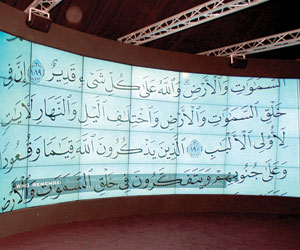 ٱلسَّمَٰوَٰتِ وَٱلْأَرْضِ وَٱللَّهُ عَلَىٰ كُلِّ شَىْءٍ قَدِيرٌ ١٨٩ إِنَّ فِى
خَلْقِ ٱلسَّمَٰوَٰتِ وَٱلْأَرْضِ وَٱخْتِلَٰفِ ٱلَّيْلِ وَٱلنَّهَارِ لَءَايَٰتٍ
لِّأُو۟لِى ٱلْأَلْبَٰبِ ١٩٠ ٱلَّذِينَ يَذْكُرُونَ ٱللَّهَ قِيَٰمًا وَقُعُودًا
وَعَلَىٰ جُنُوبِهِمْ وَيَتَفَكَّرُونَ فِى خَلْقِ ٱلسَّمَٰوَٰتِ وَٱلْأَرْضِ